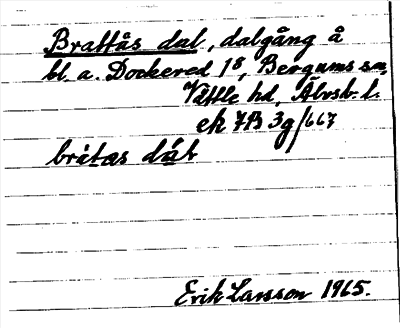 Brattås dal, dalgång å
bl. a. Dockered 1⁸, Bergums sn,
Vättle hd, Älvsb. l.
ek 7B 3g/667
Erik Larsson 1965.